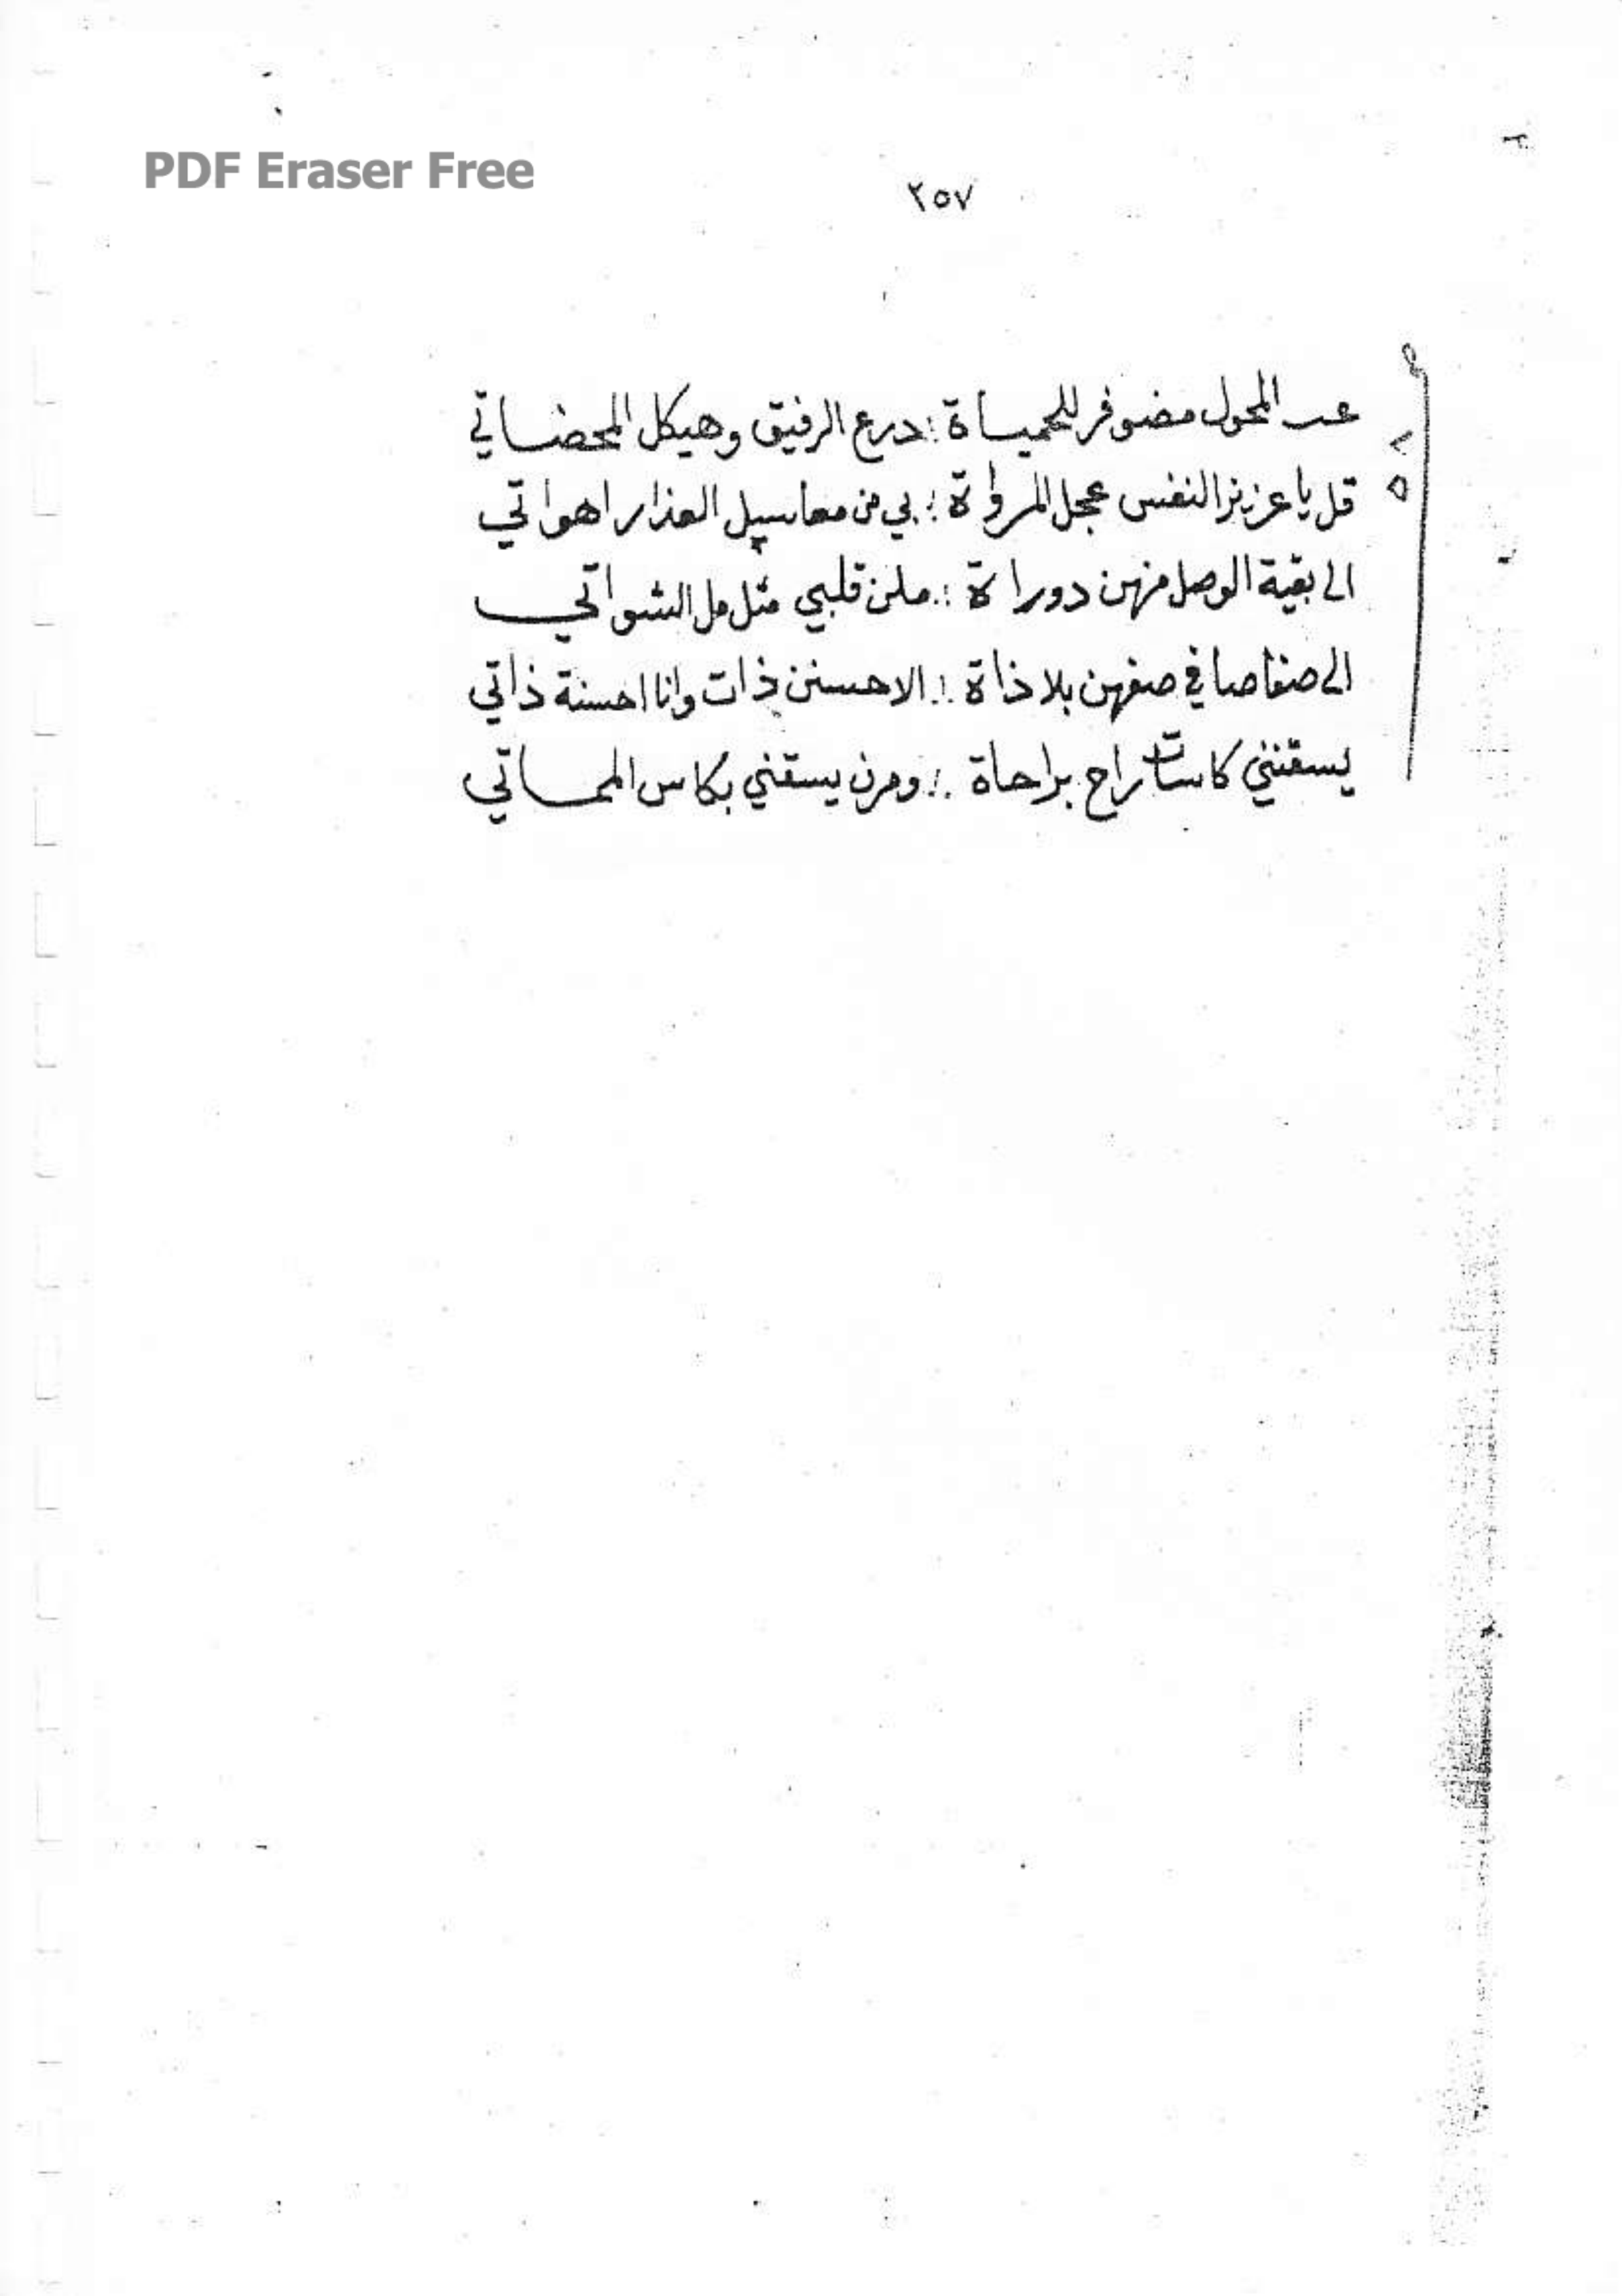 PDF Eraser Free
٢٥٧
عد المحول مضوفر للحمياة ؛ درع الرفيق وهيكل المحضاتي
قل يا عزيز النفس عجل المرواة ؛ بي من معاسيل العذارا هواتي
الى بقية الوصل منهن دوراة ؛ ملن قلبي مثل مل الشواتي
الى صفا صافي صفهن بلا ذاة ؛ الاحسنن ذات وانا احسنة ذاتي
يسقنني كاسات راح براحاة ؛ ومرن يسقنني بكاس المماتي